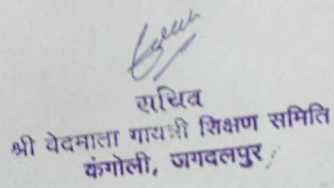 सचिव
श्री वेदमाता गायत्री शिक्षण समिति
कंगोली, जगदलपुर